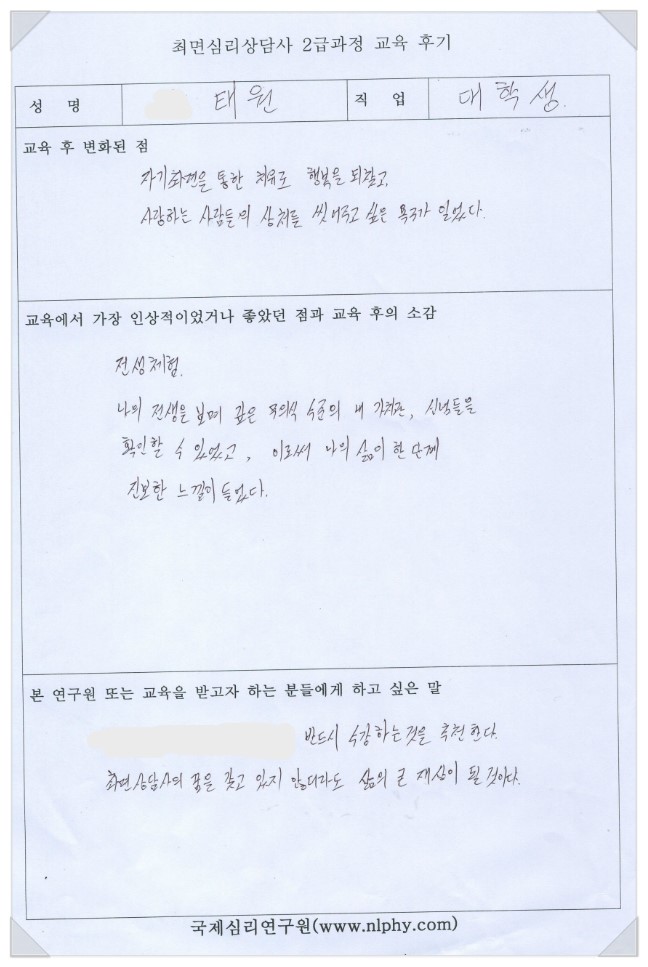 최면심리상담사 2급과정 교육 후기
성 명 태원 직 업 대학생.
교육 후 변화된 점
자기최면을 통한 치유로 행복을 되찾고,
사랑하는 사람들의 상처를 씻어주고 싶은 욕구가 일었다.
교육에서 가장 인상적이었거나 좋았던 점과 교육 후의 소감
전생체험.
나의 전생을 보며 깊은 무의식 수준의 내 가치관, 신념들을
확인할 수 있었고, 이로써 나의 삶이 한 단계
진보한 느낌이 들었다.
본 연구원 또는 교육을 받고자 하는 분들에게 하고 싶은 말
반드시 수강하는것을 추천한다.
최면상담사의 꿈을 갖고 있지 않더라도 삶의 큰 재산이 될 것이다.
국제심리연구원(www.nlphy.com)